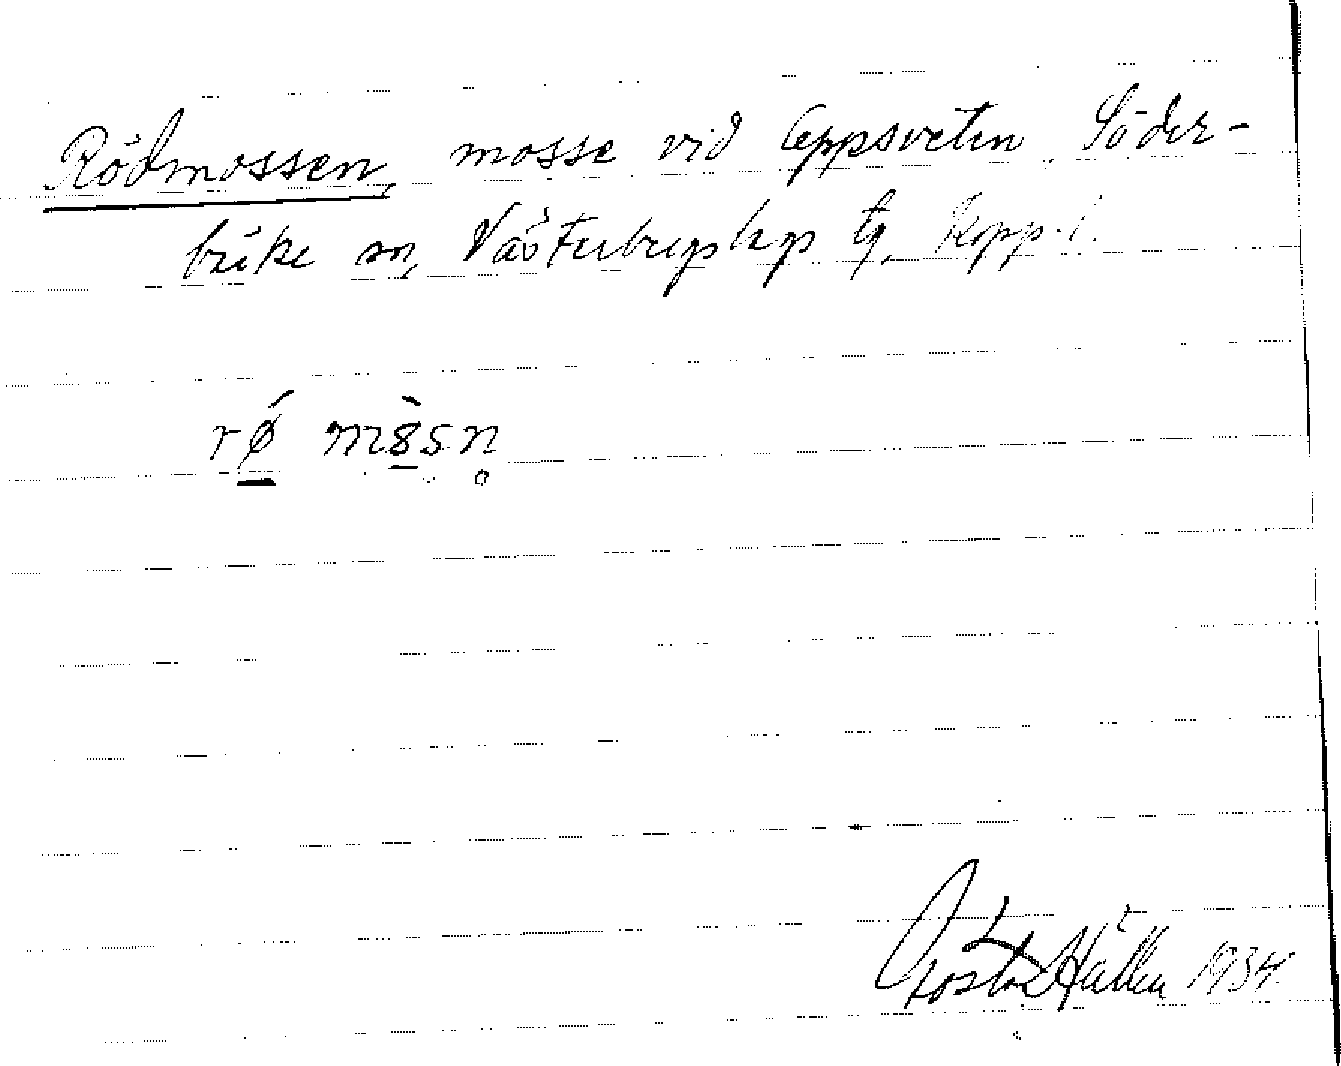 Rödmossen, mosse vid Uppsveten, Söder-
bärke sn, Västerbergslags tg, Kopp. l.
rǿ mòsn̥
Gösta Hällen 1934